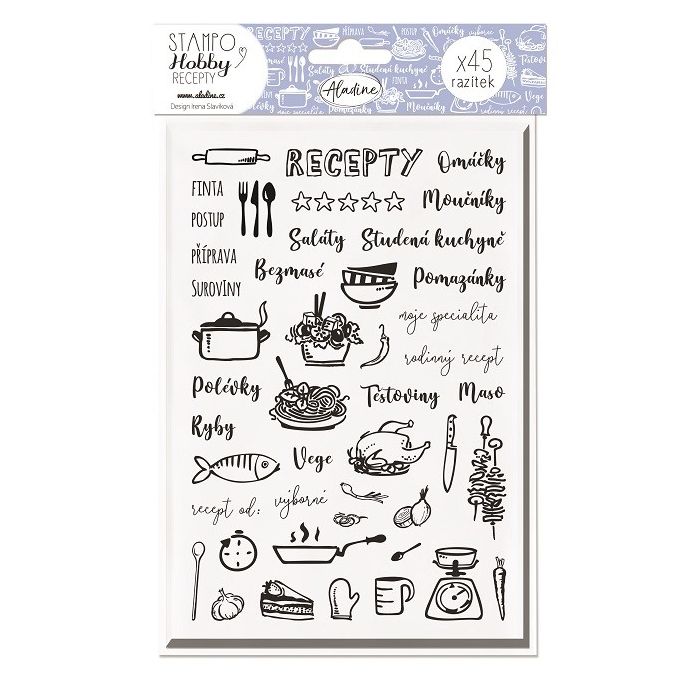 STAMPO
Hobby
RECEPTY
www.aladine.cz
Design Irena Slavíková
PŘÍPRAVA
POSTUP
Omáčky
výborné
Saláty
Studená kuchyně
Těstoviny
Aladine
moje specialita
Pomazánky
Moučníky
rodinný recept
Vege
x45
razítek
RECEPTY
Omáčky
FINTA
Moučníky
POSTUP
Saláty
Studená kuchyně
PŘÍPRAVA
Bezmasé
Pomazánky
SUROVINY
moje specialita
rodinný recept
Polévky
Těstoviny
Maso
Ryby
Vege
recept od:
výborné